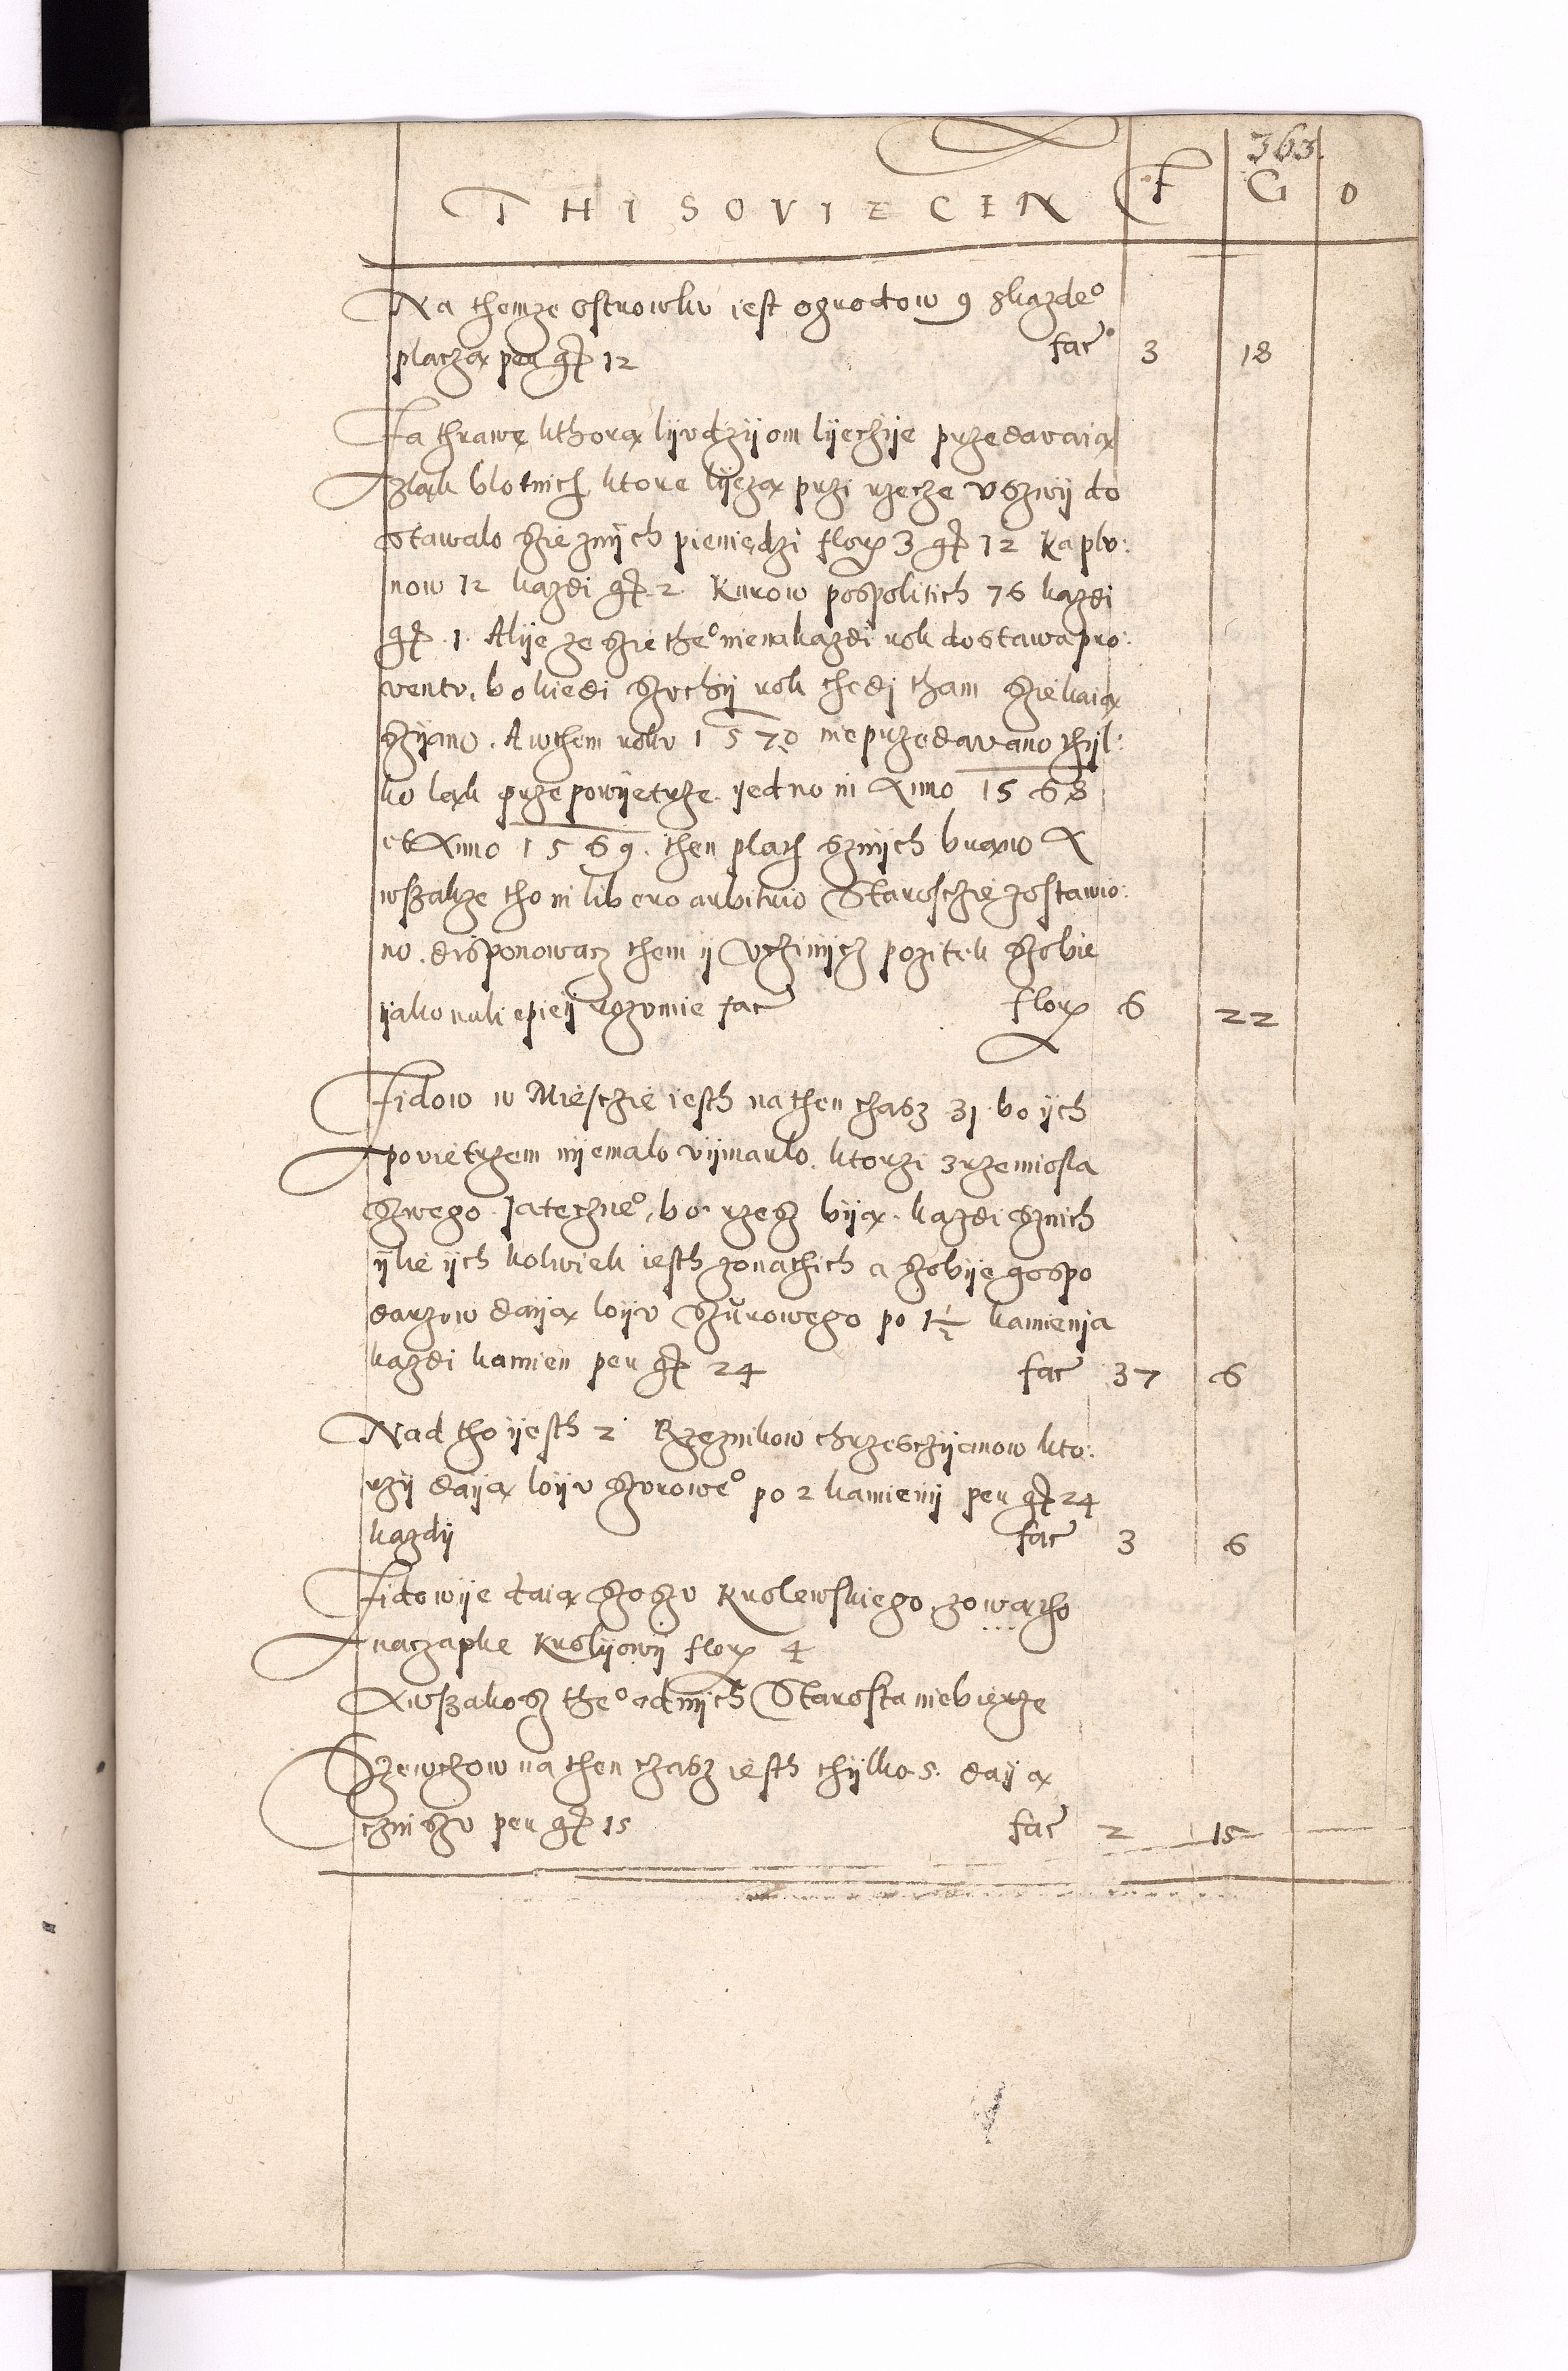 363.
THISOVIECEN F G D
Na themze ostrowku iest ogrodow 9 skazdeo
placzą per gr 12 fac 3 18
Za thrawę kthorą lyvdzyom lyeczye przedavaią
zląk blotnich, ktore lyezą przi rzecze Vszwy do
stawalo szie znych pieniędzi flor 3 gr 12 Kaplu:
now 12 kazdi gr 2 Kurow pospolitich 76 kazdi
gr 1. Alye ze szie theo niena kazdi rok dostawa pro:
ventu, bo kiedi szuchy rok thedj tham siekaią
szyano. A wthem roku 1570 nie przedavano thyl:
ko ląk przepowyetrze. yedno in Anno 1568
et Anno 1569. then plath sznych brano A
wszakze tho in libero arbitrio Starosczie zostawio:
no. disponowacz them y Vczinycz pozitek szobie
yako naliepiey rozumie fac flor 6 22
Zidow w Miesczie iesth na then czasz 31 bo ych
povietrzem nyemalo vymarlo. ktorzi z rzemiosla
szwego Jateczneo, bo rzesz byą. kazdi sznich
yle ych kolwiek iesth zonathich a szobye gospo
darzow dayą loyu szurowego po 1½ kamienja
kazdi kamien per gr 24 fac 37 6
Nad tho yesth 2 Rzeznikow chrzesczyanow kto:
rzy dayą loyu szuroweo po 2 kamieny per gr 24
kazdy fac 3 6
Zidowye daią szoszu Krolewskiego zową tho
na czapke Krolyowy flor 4
A wszakosz theo odnych Starosta niebierze
Szewczow na then czasz iesth thylko 5. dayą
czinszu per gr 15 fac 2 15